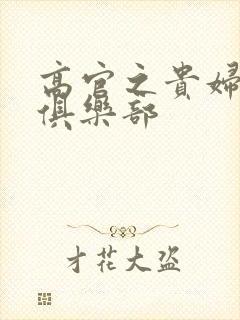 高官之貴婦
俱樂部
才花大盜